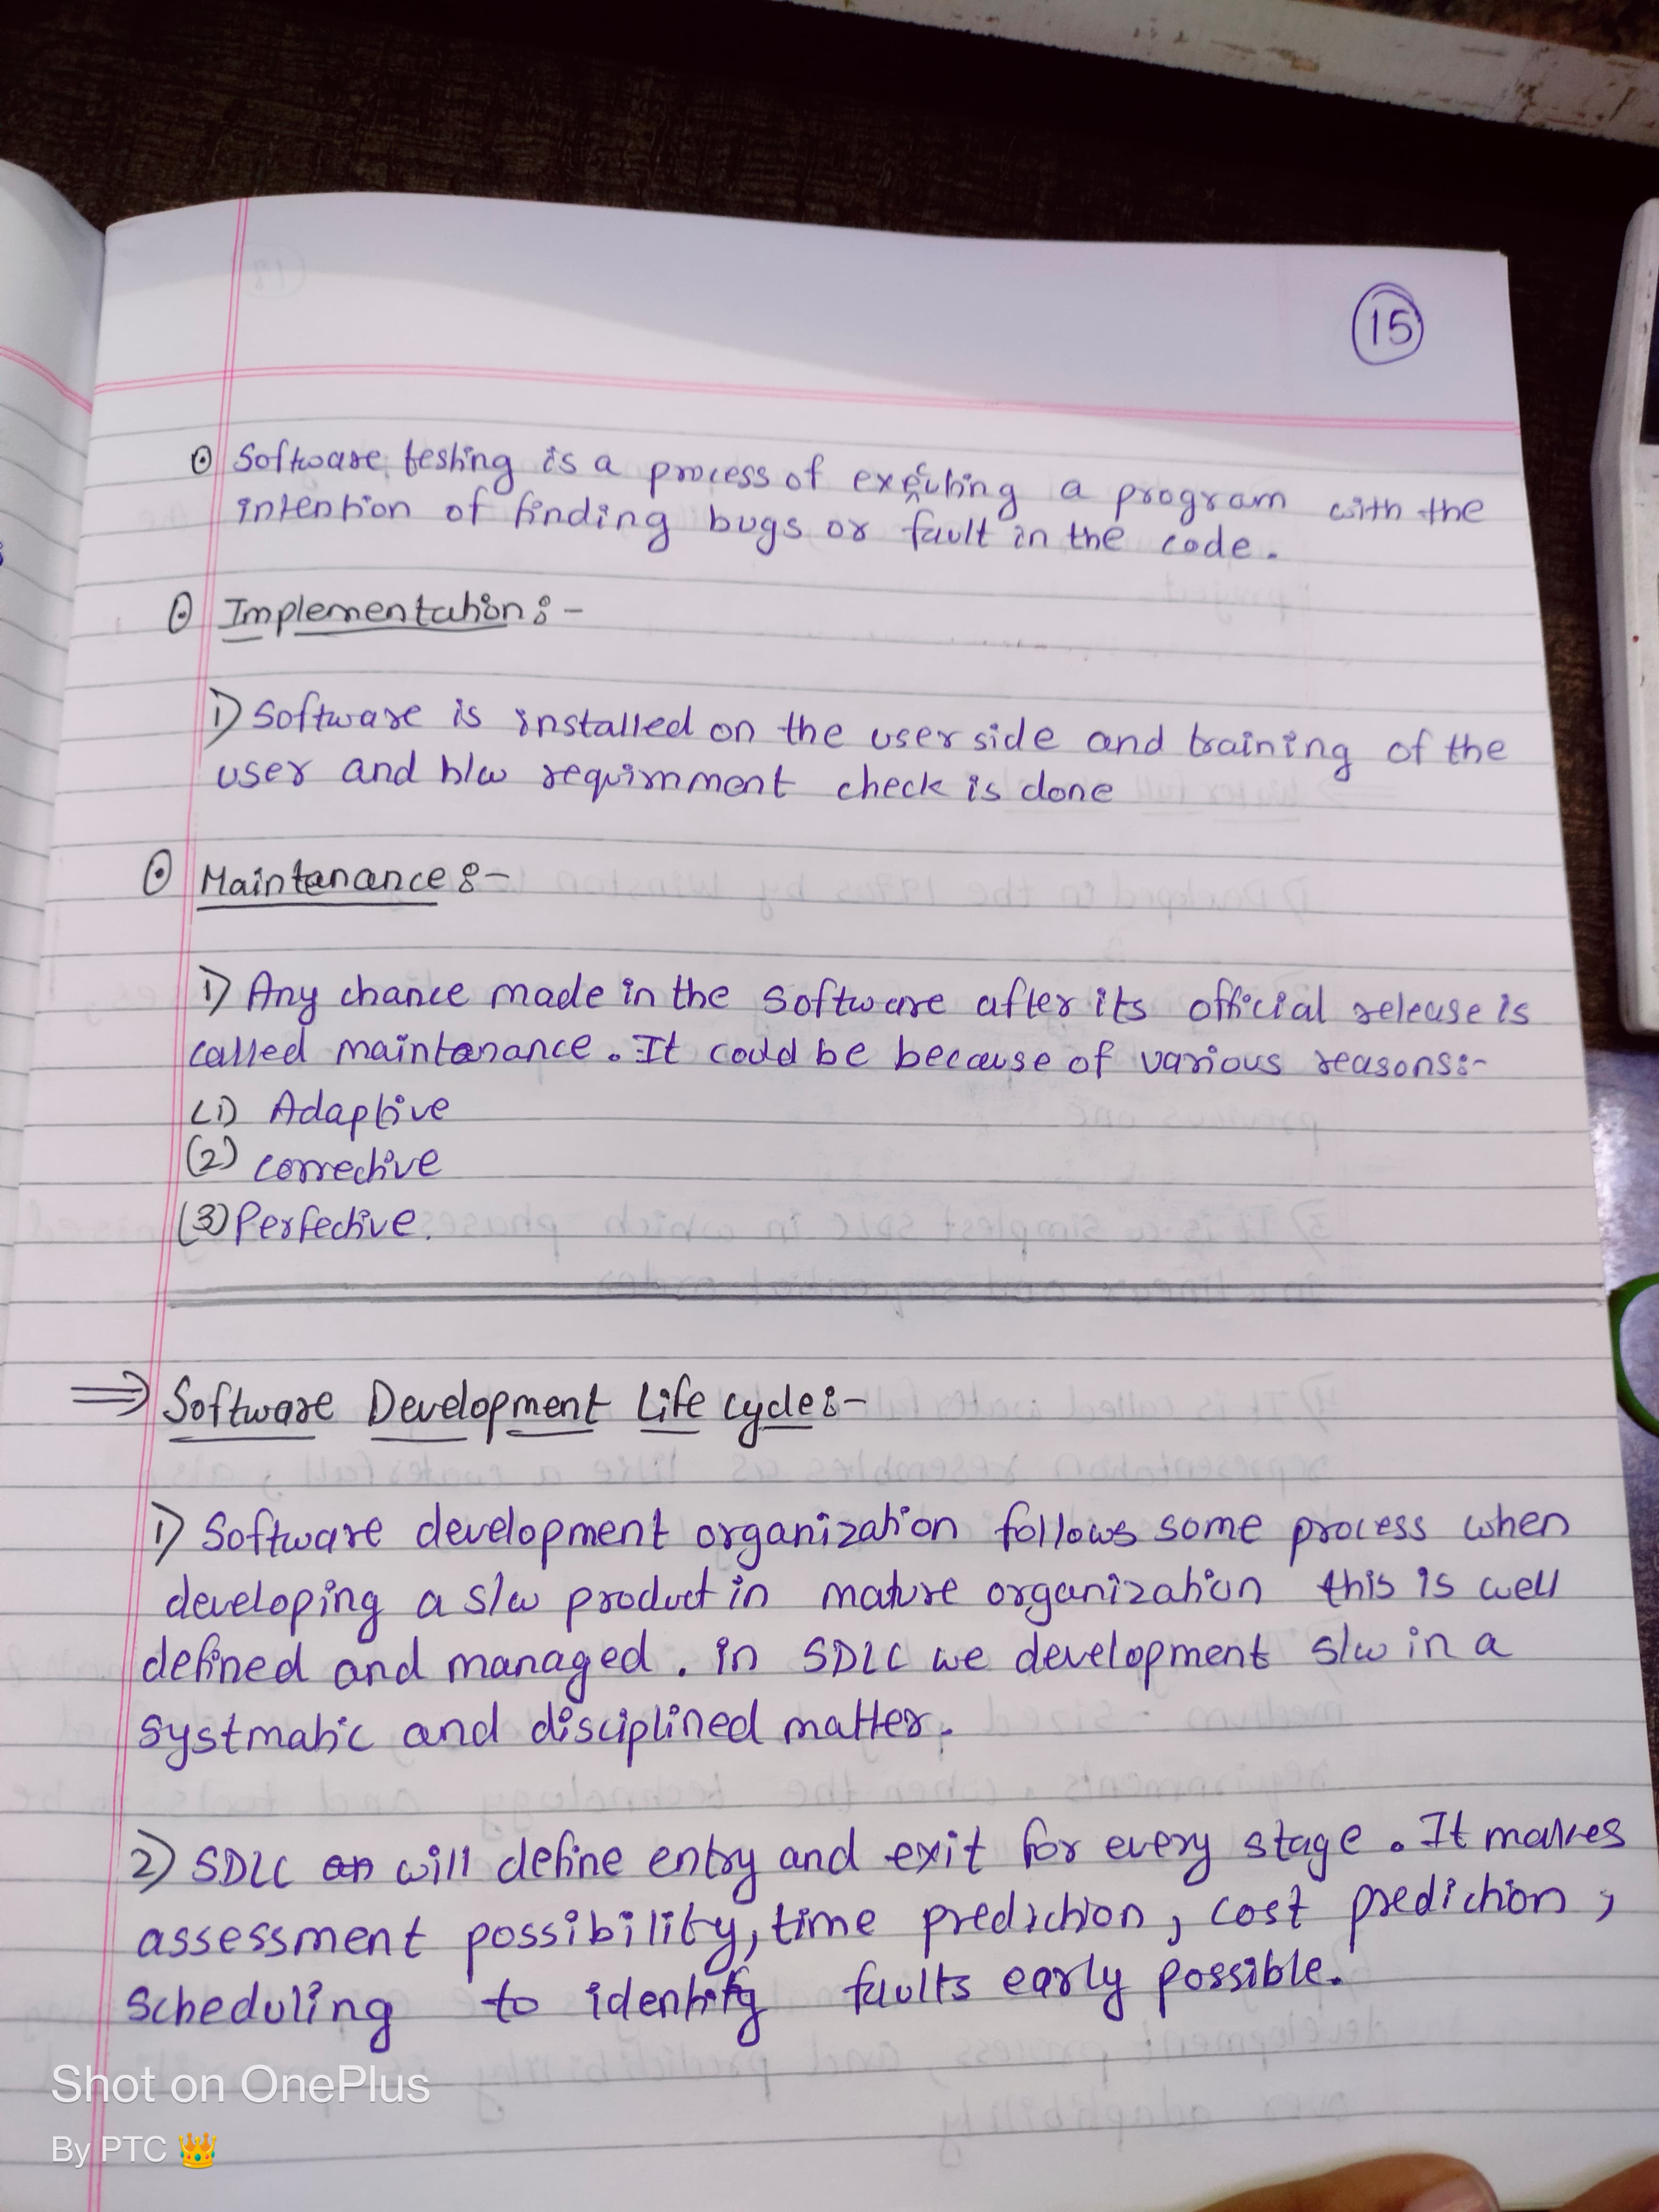 15
⊙ Software testing is a process of executing a program with the
intention of finding bugs or fault in the code.
⊙ Implementation :-
1) Software is installed on the user side and training of the
user and h/w requirnment check is done
⊙ Maintanance :-
1) Any chance made in the software after its official release is
called maintanance. It could be because of various reasons:-
(1) Adaptive
(2) corrective
(3) Perfective.
⇒ Software Development Life cycle :-
1) Software development organization follows some process when
developing a s/w product in mature organization this is well
defined and managed. in SDLC we development s/w in a
systmatic and disciplined matter.
2) SDLC will define entry and exit for every stage. It makes
assessment possibility, time prediction, cost prediction,
scheduling to identify faults early possible.
Shot on OnePlus
By PTC 👑